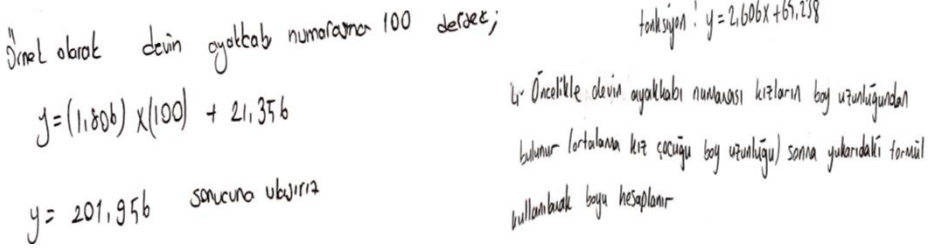 Örnek olarak devin ayakkabı numarasına 100 dersek;
y=(1,806) x(100) + 21,356
y= 201,956 sonucuna ulaşırız
fonksiyon: y=2,606x+65,238
↳ Öncelikle devin ayakkabı numarası kızların boy uzunluğundan
bulunur (ortalama kız çocuğu boy uzunluğu) sonra yukarıdaki formül
kullanılarak boyu hesaplanır